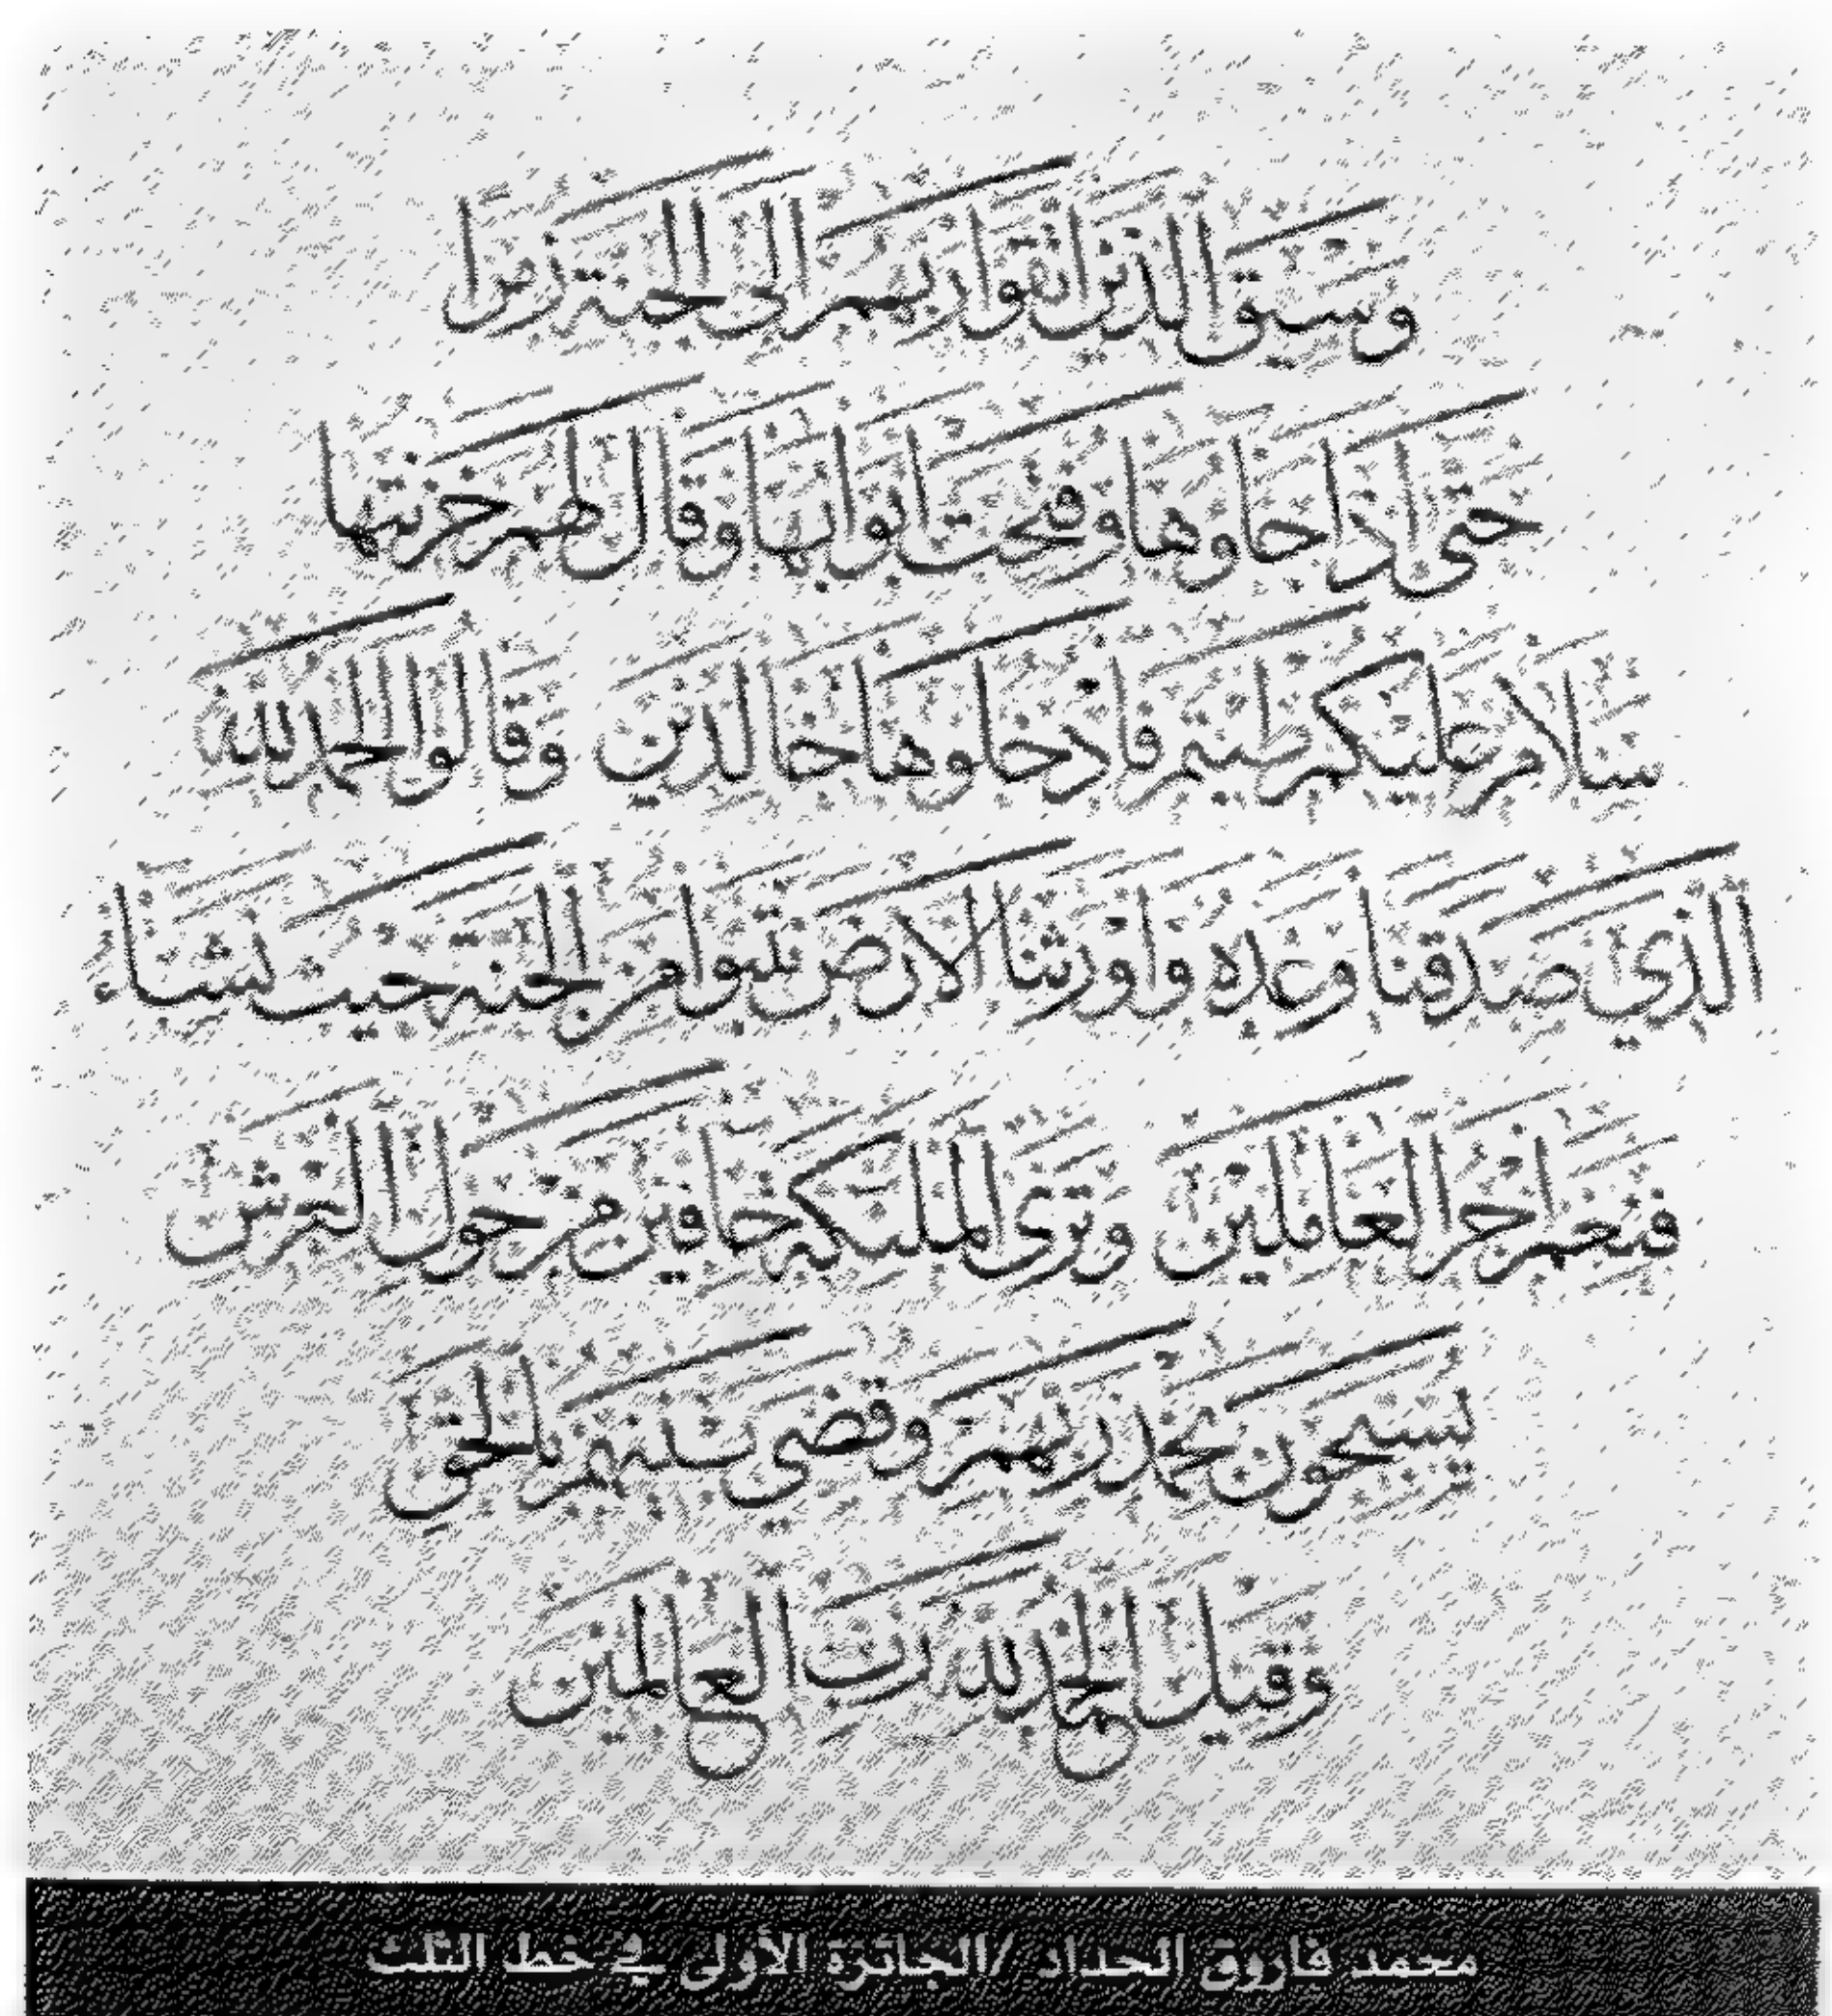 وسيق الذين اتقوا ربهم الى الجنة زمرا
حتى اذا جاوها وفتحت ابوابها وقال لهم خزنتها
سلام عليكم طبتم فادخلوها خالدين وقالوا الحمد لله
الذي صدقنا وعده واورثنا الارض نتبوا من الجنة حيث نشاء
فنعم اجر العاملين وترى الملئكة حافين من حول العرش
يسبحون بحمد ربهم وقضي بينهم بالحق
وقيل الحمد لله رب العالمين
محمد فاروق الحداد /الجائزة الأولى في خط الثلث